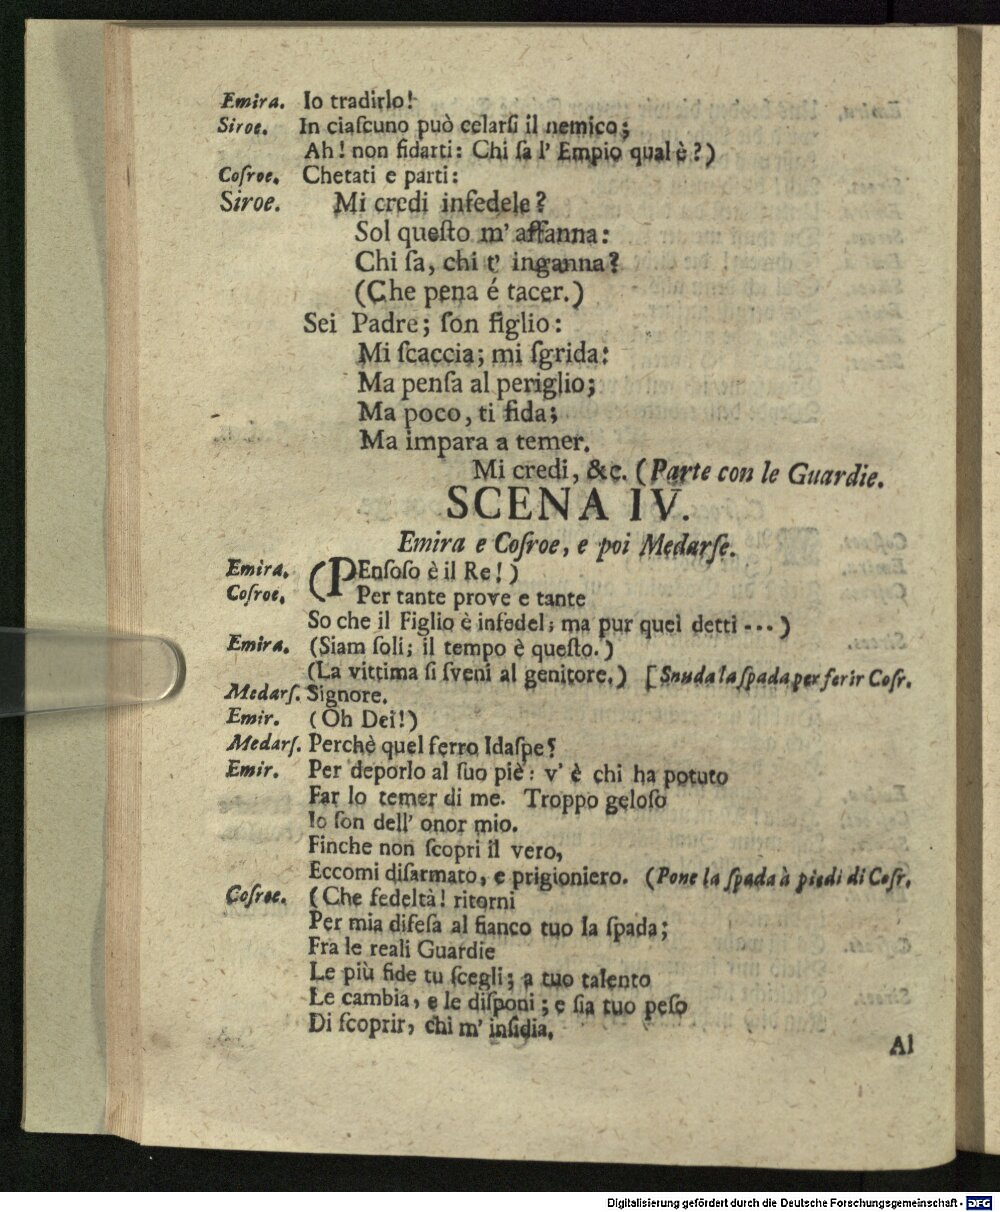 Emira. Io tradirlo!
Siroe. In ciaſcuno può celarſi il nemico;
Ah! non fidarti: Chi ſa l' Empio qual è?)
Coſroe. Chetati e parti:
Siroe. Mi credi infedele?
Sol queſto m' affanna:
Chi ſa, chi t' inganna?
(Che pena é tacer.)
Sei Padre; ſon figlio:
Mi ſcaccia; mi ſgrida:
Ma penſa al periglio;
Ma poco, ti fida;
Ma impara a temer.
Mi credi, &c. (Parte con le Guardie.
SCENA IV.
Emira e Coſroe, e poi Medarſe.
Emira. (PEnſoſo è il Re!)
Coſroe. Per tante prove e tante
So che il Figlio è infedel; ma pur quei detti - - - )
Emira. (Siam ſoli; il tempo è queſto.)
(La vittima ſi ſveni al genitore.) [Snuda la ſpada per ferir Coſr.
Medarſ. Signore.
Emir. (Oh Dei!)
Medarſ. Perchè quel ferro Idaſpe?
Emir. Per deporlo al ſuo piè: v' è chi ha potuto
Far lo temer di me. Troppo geloſo
Io ſon dell' onor mio.
Finche non ſcopri il vero,
Eccomi diſarmato, e prigioniero. (Pone la ſpada à piedi di Coſr.
Coſroe. (Che fedeltà! ritorni
Per mia difeſa al fianco tuo la ſpada;
Fra le reali Guardie
Le più fide tu ſcegli; a tuo talento
Le cambia, e le diſponi; e ſia tuo peſo
Di ſcoprir, chi m' inſidia.
Al
Digitalisierung gefördert durch die Deutsche Forschungsgemeinschaft - DFG